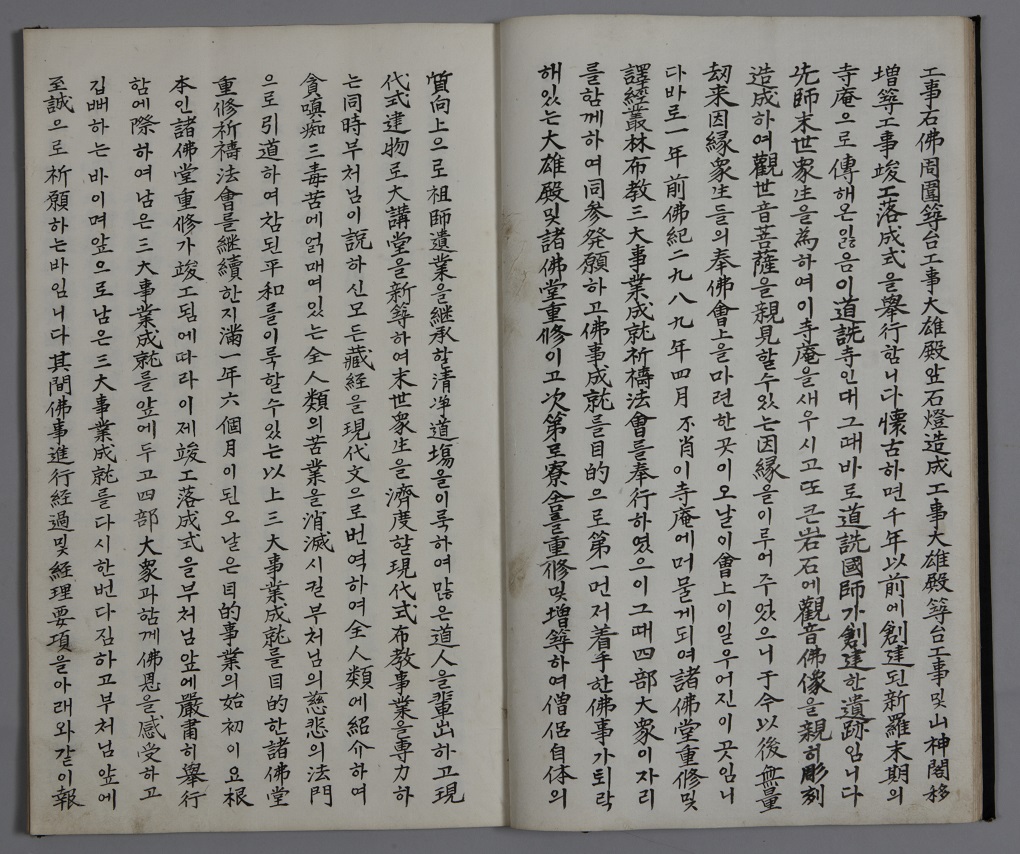 工事石佛周圍築台工事大雄殿앞石燈造成工事大雄殿築台工事및山神閣移
增築工事竣工落成式을擧行합니다懷古하면千年以前에創建된新羅末期의
寺庵으로傳해온일음이道詵寺인대그대바로道詵國師가創建한遺跡임니다
先師末世衆生을為하여이寺庵을새우시고또큰岩石에觀音佛像을親히彫刻
造成하여觀世音菩薩을親見할수있는因緣을이루어주었으니于今以後無量
劫来因縁衆生들의奉佛會上을마련한곳이오날이會上이일우어진이곳임니
다바로一年前佛紀二九八九年四月不肖이寺庵에머물게되여諸佛堂重修및
譯經叢林布教三大事業成就祈禱法會를奉行하였으이그때四部大衆이자리
를함께하여同参発願하고佛事成就를目的으로第一먼저着手한佛事가퇴락
해있는大雄殿및諸佛堂重修이고次第로寮舍를重修및增築하여僧侶自体의
質向上으로祖師遺業을継承할清淨道場을이룩하여많은道人을輩出하고現
代式建物로大講堂을新築하여末世衆生을濟度할現代式布教事業을専力하
는同時부처님이說하신모든藏經을現代文으로번역하여全人類에紹介하여
貪嗔痴三毒苦에얽매여있는全人類의苦業을消滅시킬부처님의慈悲의法門
으로引道하여참된平和를이룩할수있는以上三大事業成就를目的한諸佛堂
重修祈禱法會를継續한지滿一年六個月이된오날은目的事業의始初이요根
本인諸佛堂重修가竣工됨에따라이제竣工落成式을부처님앞에嚴肅히擧行
함에際하여남은三大事業成就를앞에두고四部大衆과함께佛恩을感受하고
깁뻐하는바이며앞으로남은三大事業成就를다시한번다짐하고부처님앞에
至誠으로祈願하는바임니다其間佛事進行経過및経理要項을아래와같이報